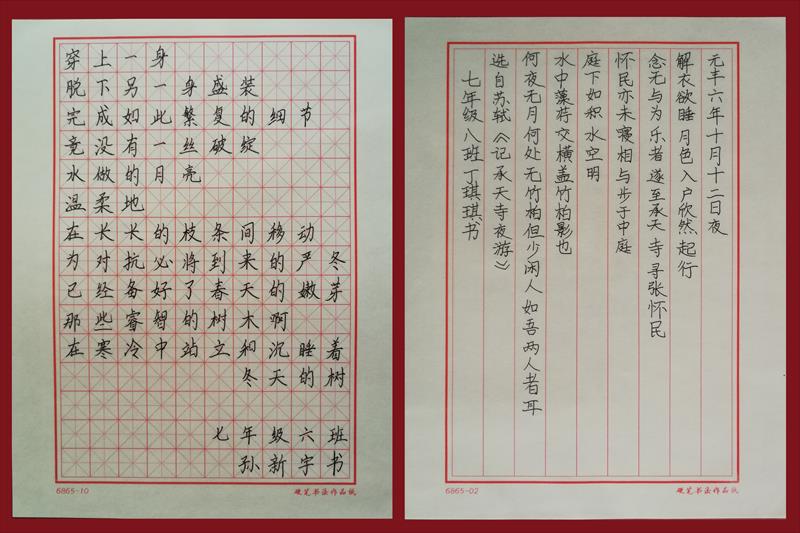 穿上一身
脱下另一身盛装
完成如此繁复的细节
竟没有一丝破绽
水做的月亮
温柔地
在长长的枝条间移动
为对抗必将到来的严冬
已经备好了春天的嫩芽
那些睿智的树木啊
在寒冷中站立和沉睡着
冬天的树
七年级六班
孙新宇书
6865-10
硬笔书法作品纸
元丰六年十月十二日夜
解衣欲睡月色入户欣然起行
念无与为乐者遂至承天寺寻张怀民
怀民亦未寝相与步于中庭
庭下如积水空明
水中藻荇交横盖竹柏影也
何夜无月何处无竹柏但少闲人如吾两人者耳
选自苏轼《记承天寺夜游》
七年级八班丁琪琪书
6865-02
硬笔书法作品纸